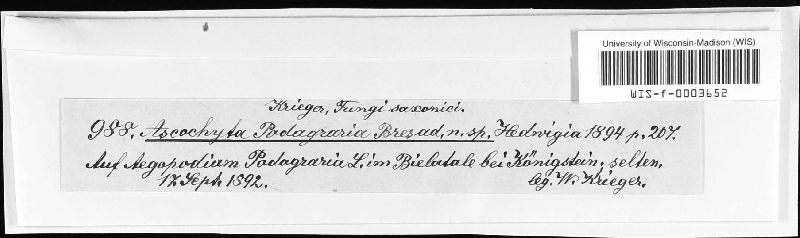 University of Wisconsin-Madison (WIS)
WIS-f-0003652
Krieger, Fungi saxonici.
988. Ascochyta Podagraria Bresad, n. sp. Hedwigia 1894 p. 207.
Auf Aegopodium Podagraria L. im Bielatale bei Königstein, selten,
17. Sept. 1892. leg. W. Krieger.